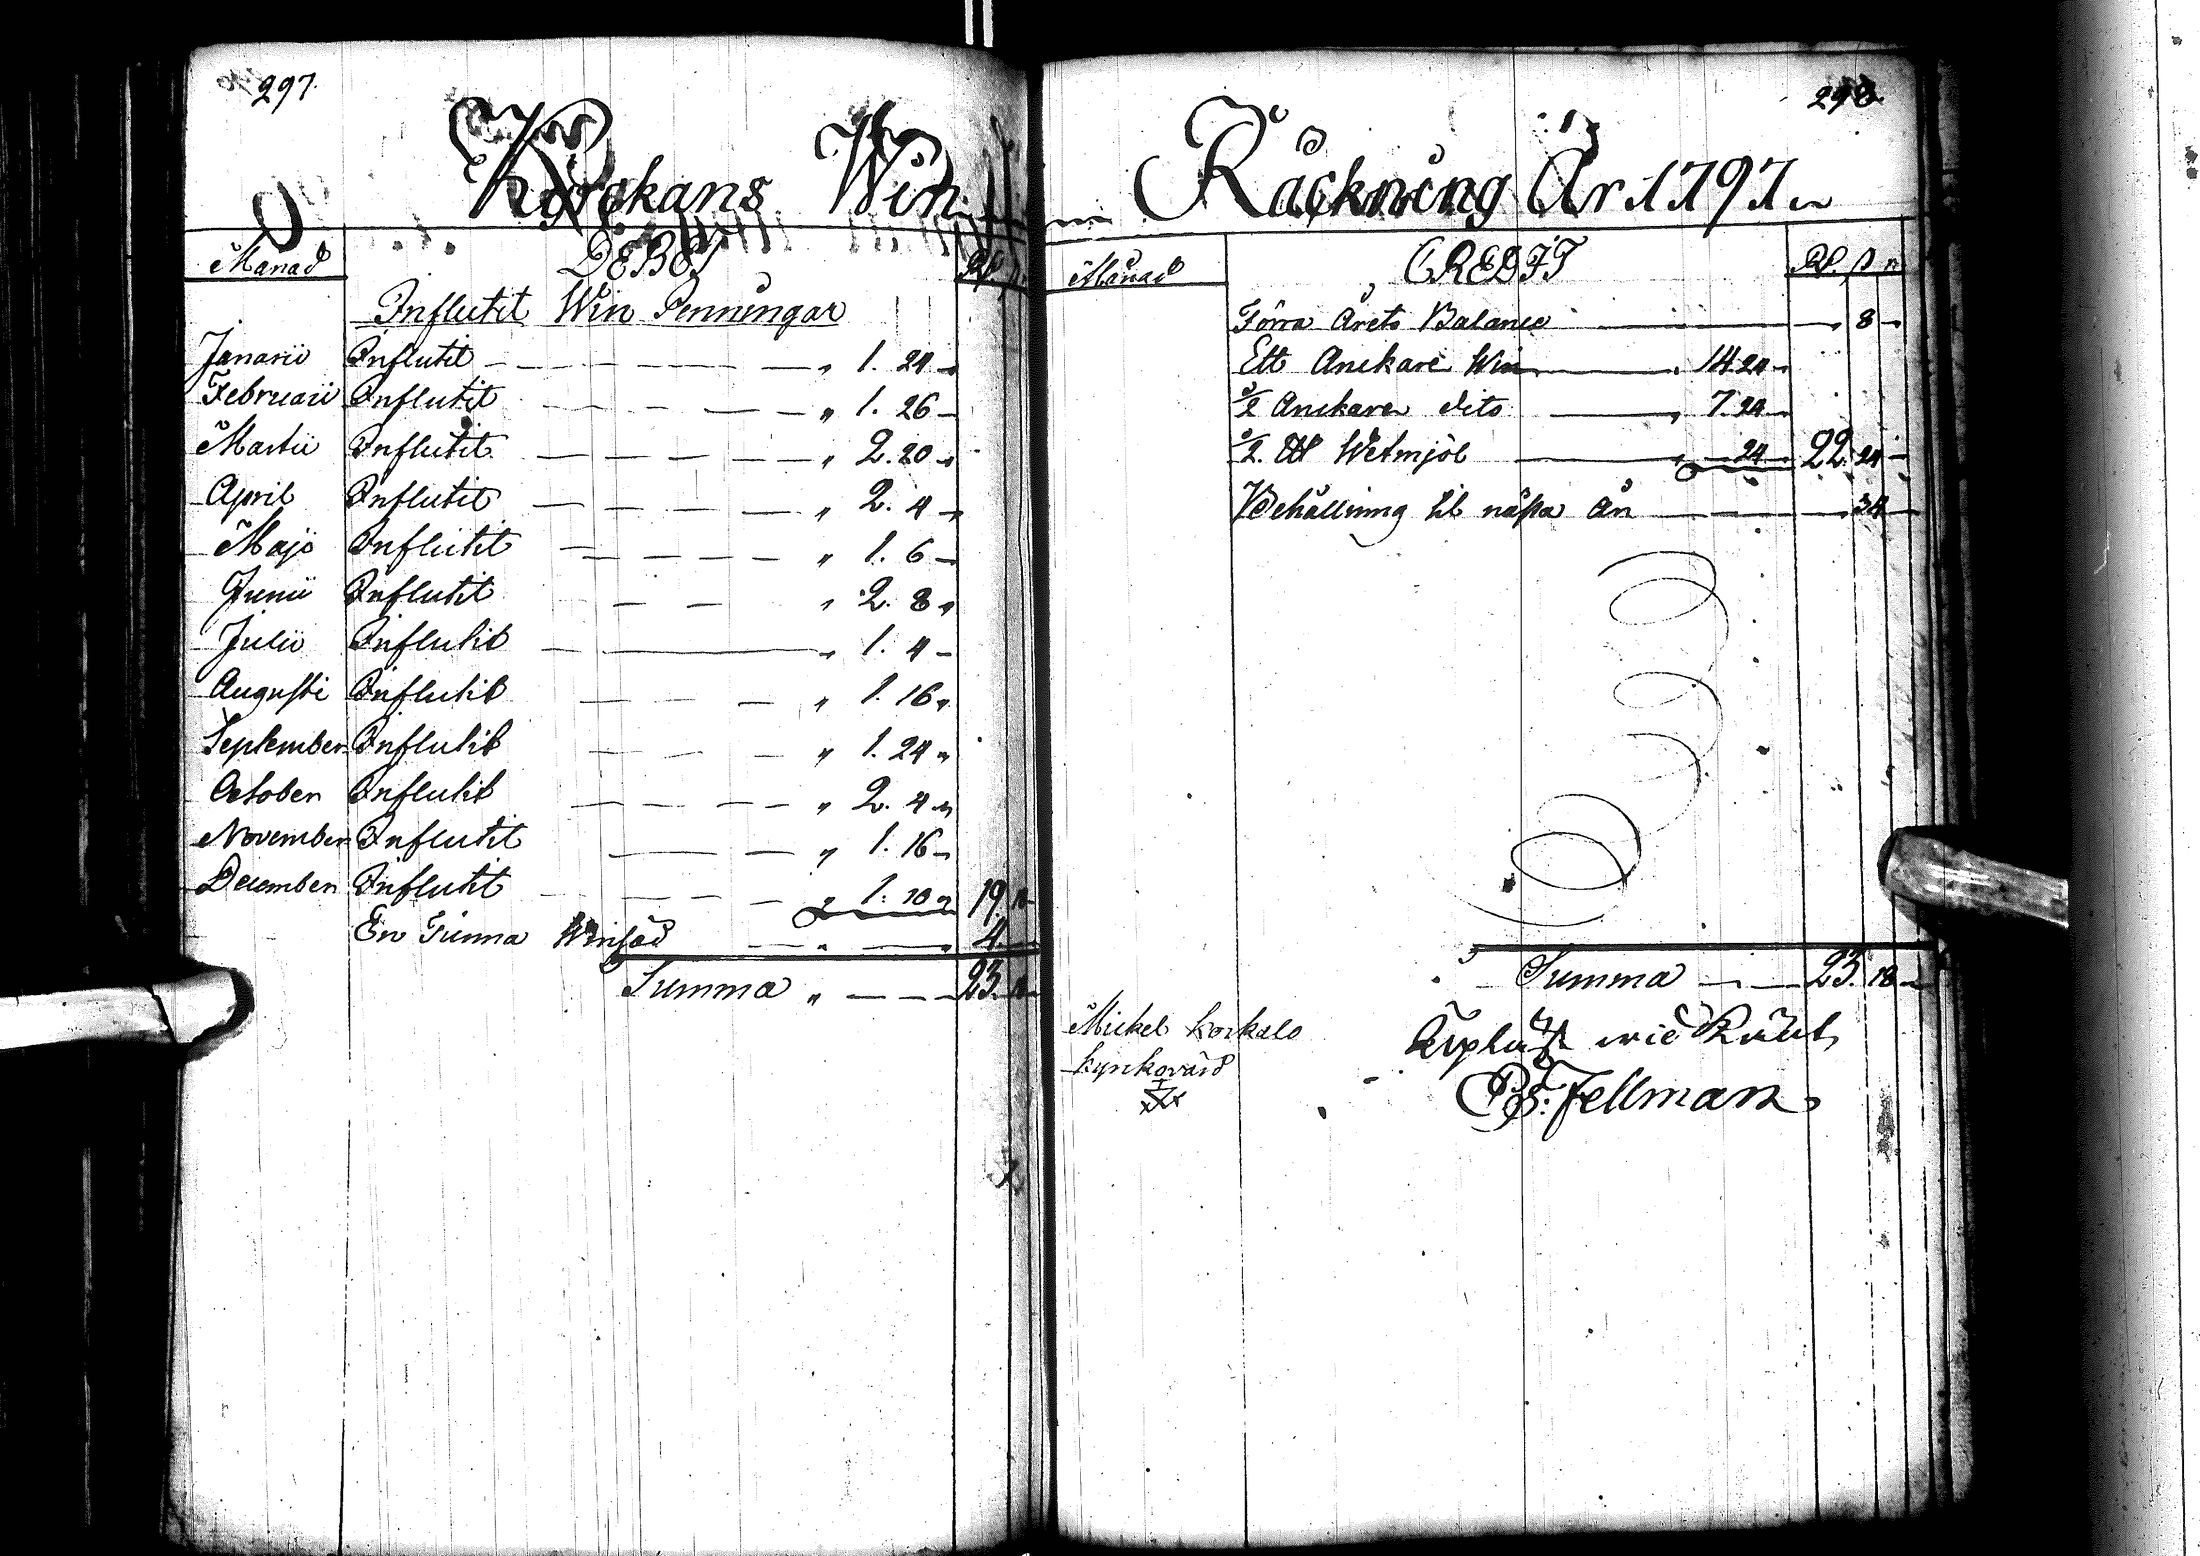 297.
Kyrckans Win
Månad DEBET Rd. ß.
Influtit Win Penningar
Januarii Influtit — — — — " 1. 24 —
Februarii Influtit — — — — " 1. 26 —
Martii Influtit — — — — " 2. 20 —
April Influtit — — — — " 2. 4 —
Maji Influtit — — — — " 1. 6 —
Junii Influtit — — " 2. 8 "
Julii Influtit — — " 1. 4 —
Augusti Influtit — — " 1. 16 "
September Influtit — — — " 1. 24 "
October Influtit — — — — " 2. 4 "
November Influtit — — " 1. 16 —
December Influtit — — — — " 1: 10 " 19. 18 —
En Tunna Winsäd — " — 4. —
Summa " — — — 23. 18 —
298
Räckning År 1797
Månad CREDIT Rd. ß r
Förra Årets Balance — — — 8 —
Ett Anckare Win — 14. 24 —
½ Anckare dito — 7. 24 —
½ lb Hwetmjöl — 24 — 22. 24 —
Behållning til näſta År — — — 34 —
Summa — — 23. 18 —
Mickel Korkalo
Kyrkovärd
Upläst wid
E. Fellman